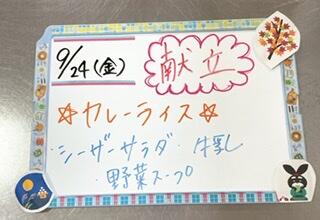 9/24(金)
献立
☆カレーライス☆
・シーザーサラダ ・牛乳
・野菜スープ